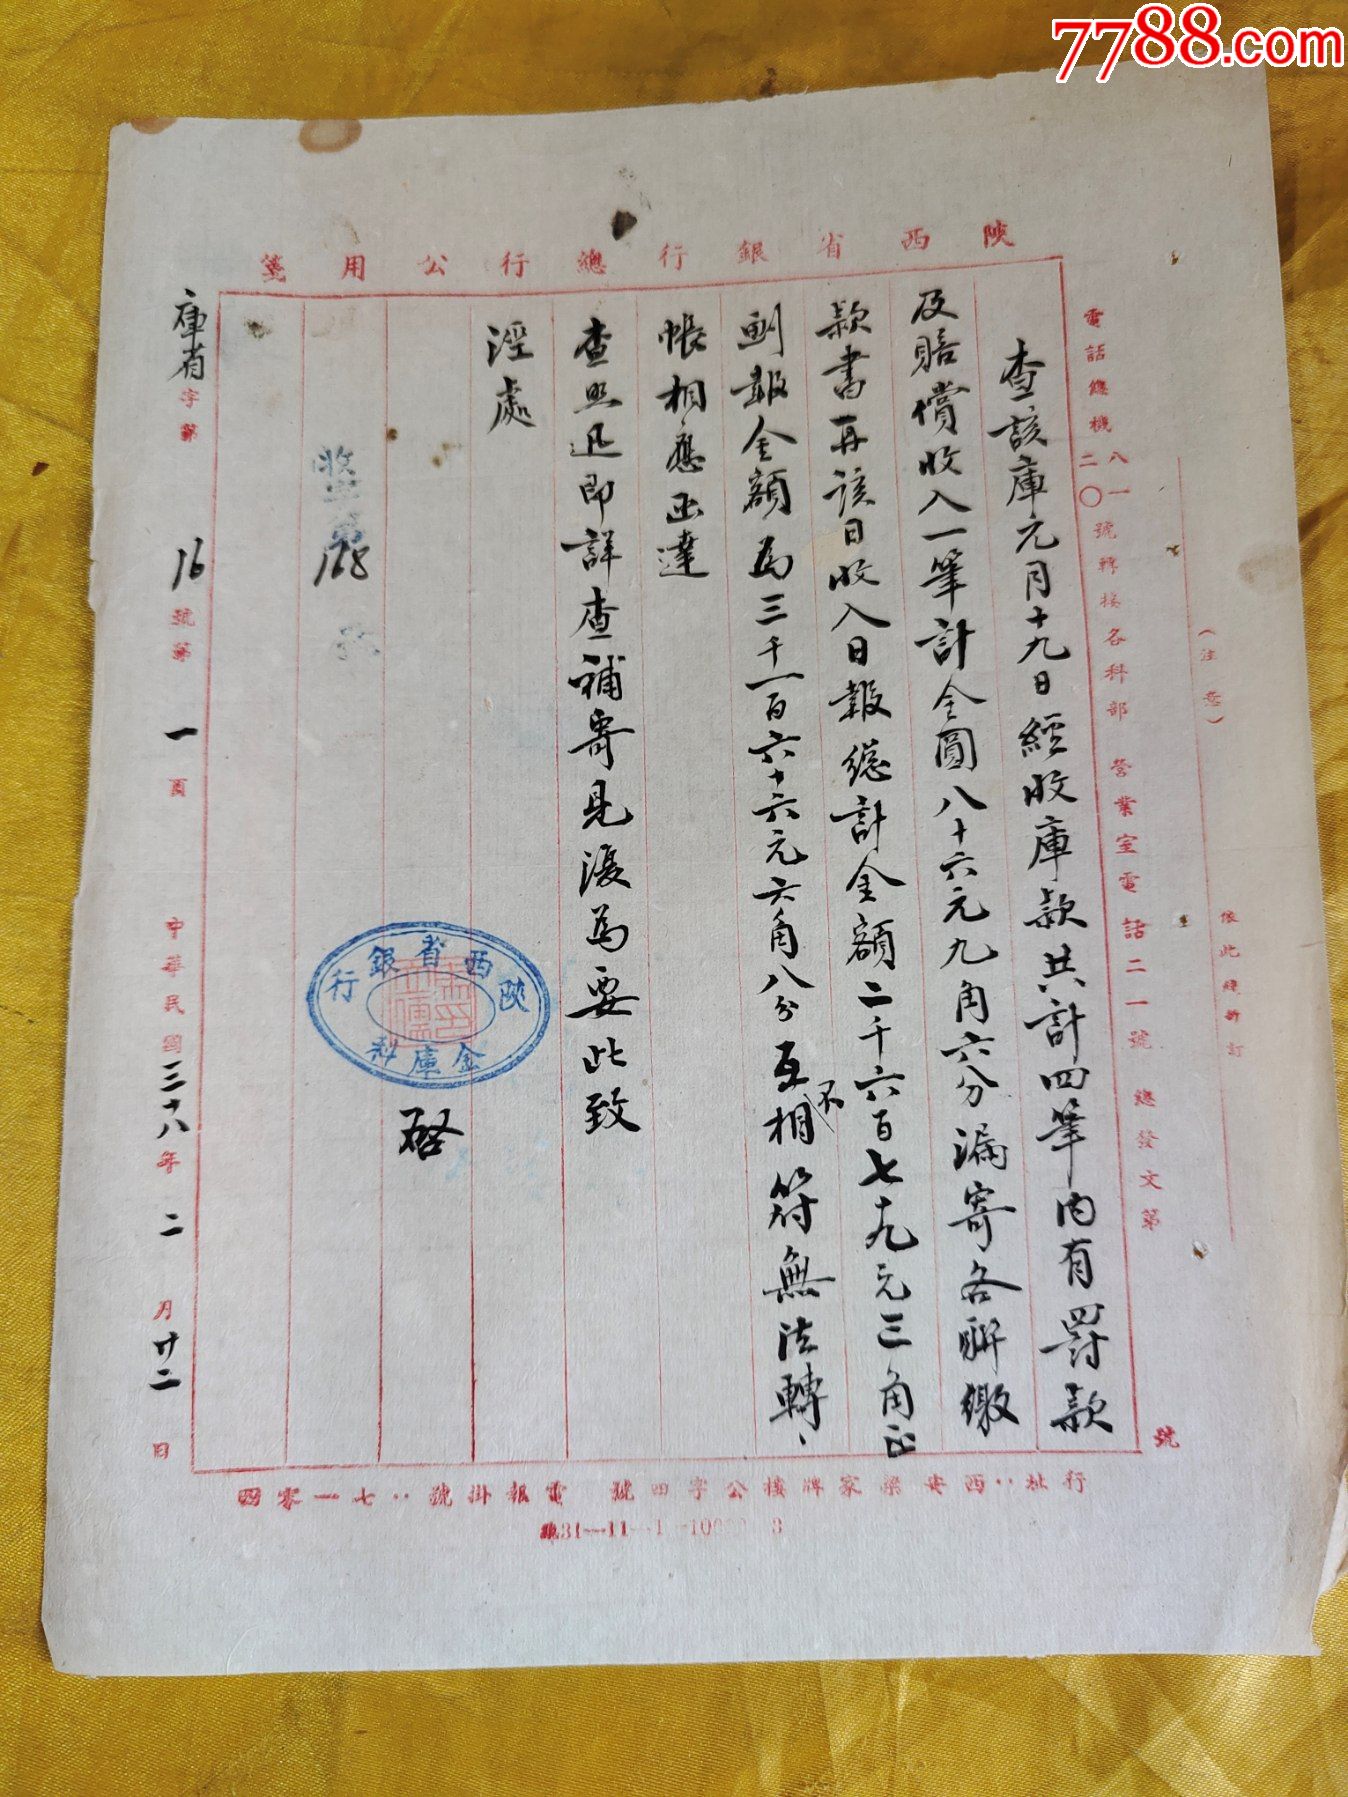 7788.com
陝西省銀行總行公用箋
電話總機八一二〇號轉接各科部 營業室電話二一號 總發文第 號
(注意)
依此線折訂
查該庫元月十九日經收庫款共計四筆內有罰款
及賠償收入一筆計金圓八十六元九角六分漏寄各聯繳
款書再該日收入日報總計金額二千六百七十九元三角正
劃報金額為三千一百六十六元六角八分互相不符無法轉
帳相應函達
查照迅即詳查補寄見復為要此致
涇處
啓
陝西省銀行
金庫科
庫省字第16號第一頁 中華民國三十八年二月廿二日
行址：西安梁家牌樓公字四號 電報掛號：七一零四